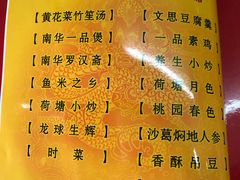 【黄花菜竹笙汤】
【文思豆腐羹】
【南华一品煲】
【一品素鸡】
【南华罗汉斋】
【养生小炒】
【鱼米之乡】
【荷塘月色】
【荷塘小炒】
【桃园春色】
【龙球生辉】
【沙葛焖地人参】
【时菜】
【香酥吊豆】